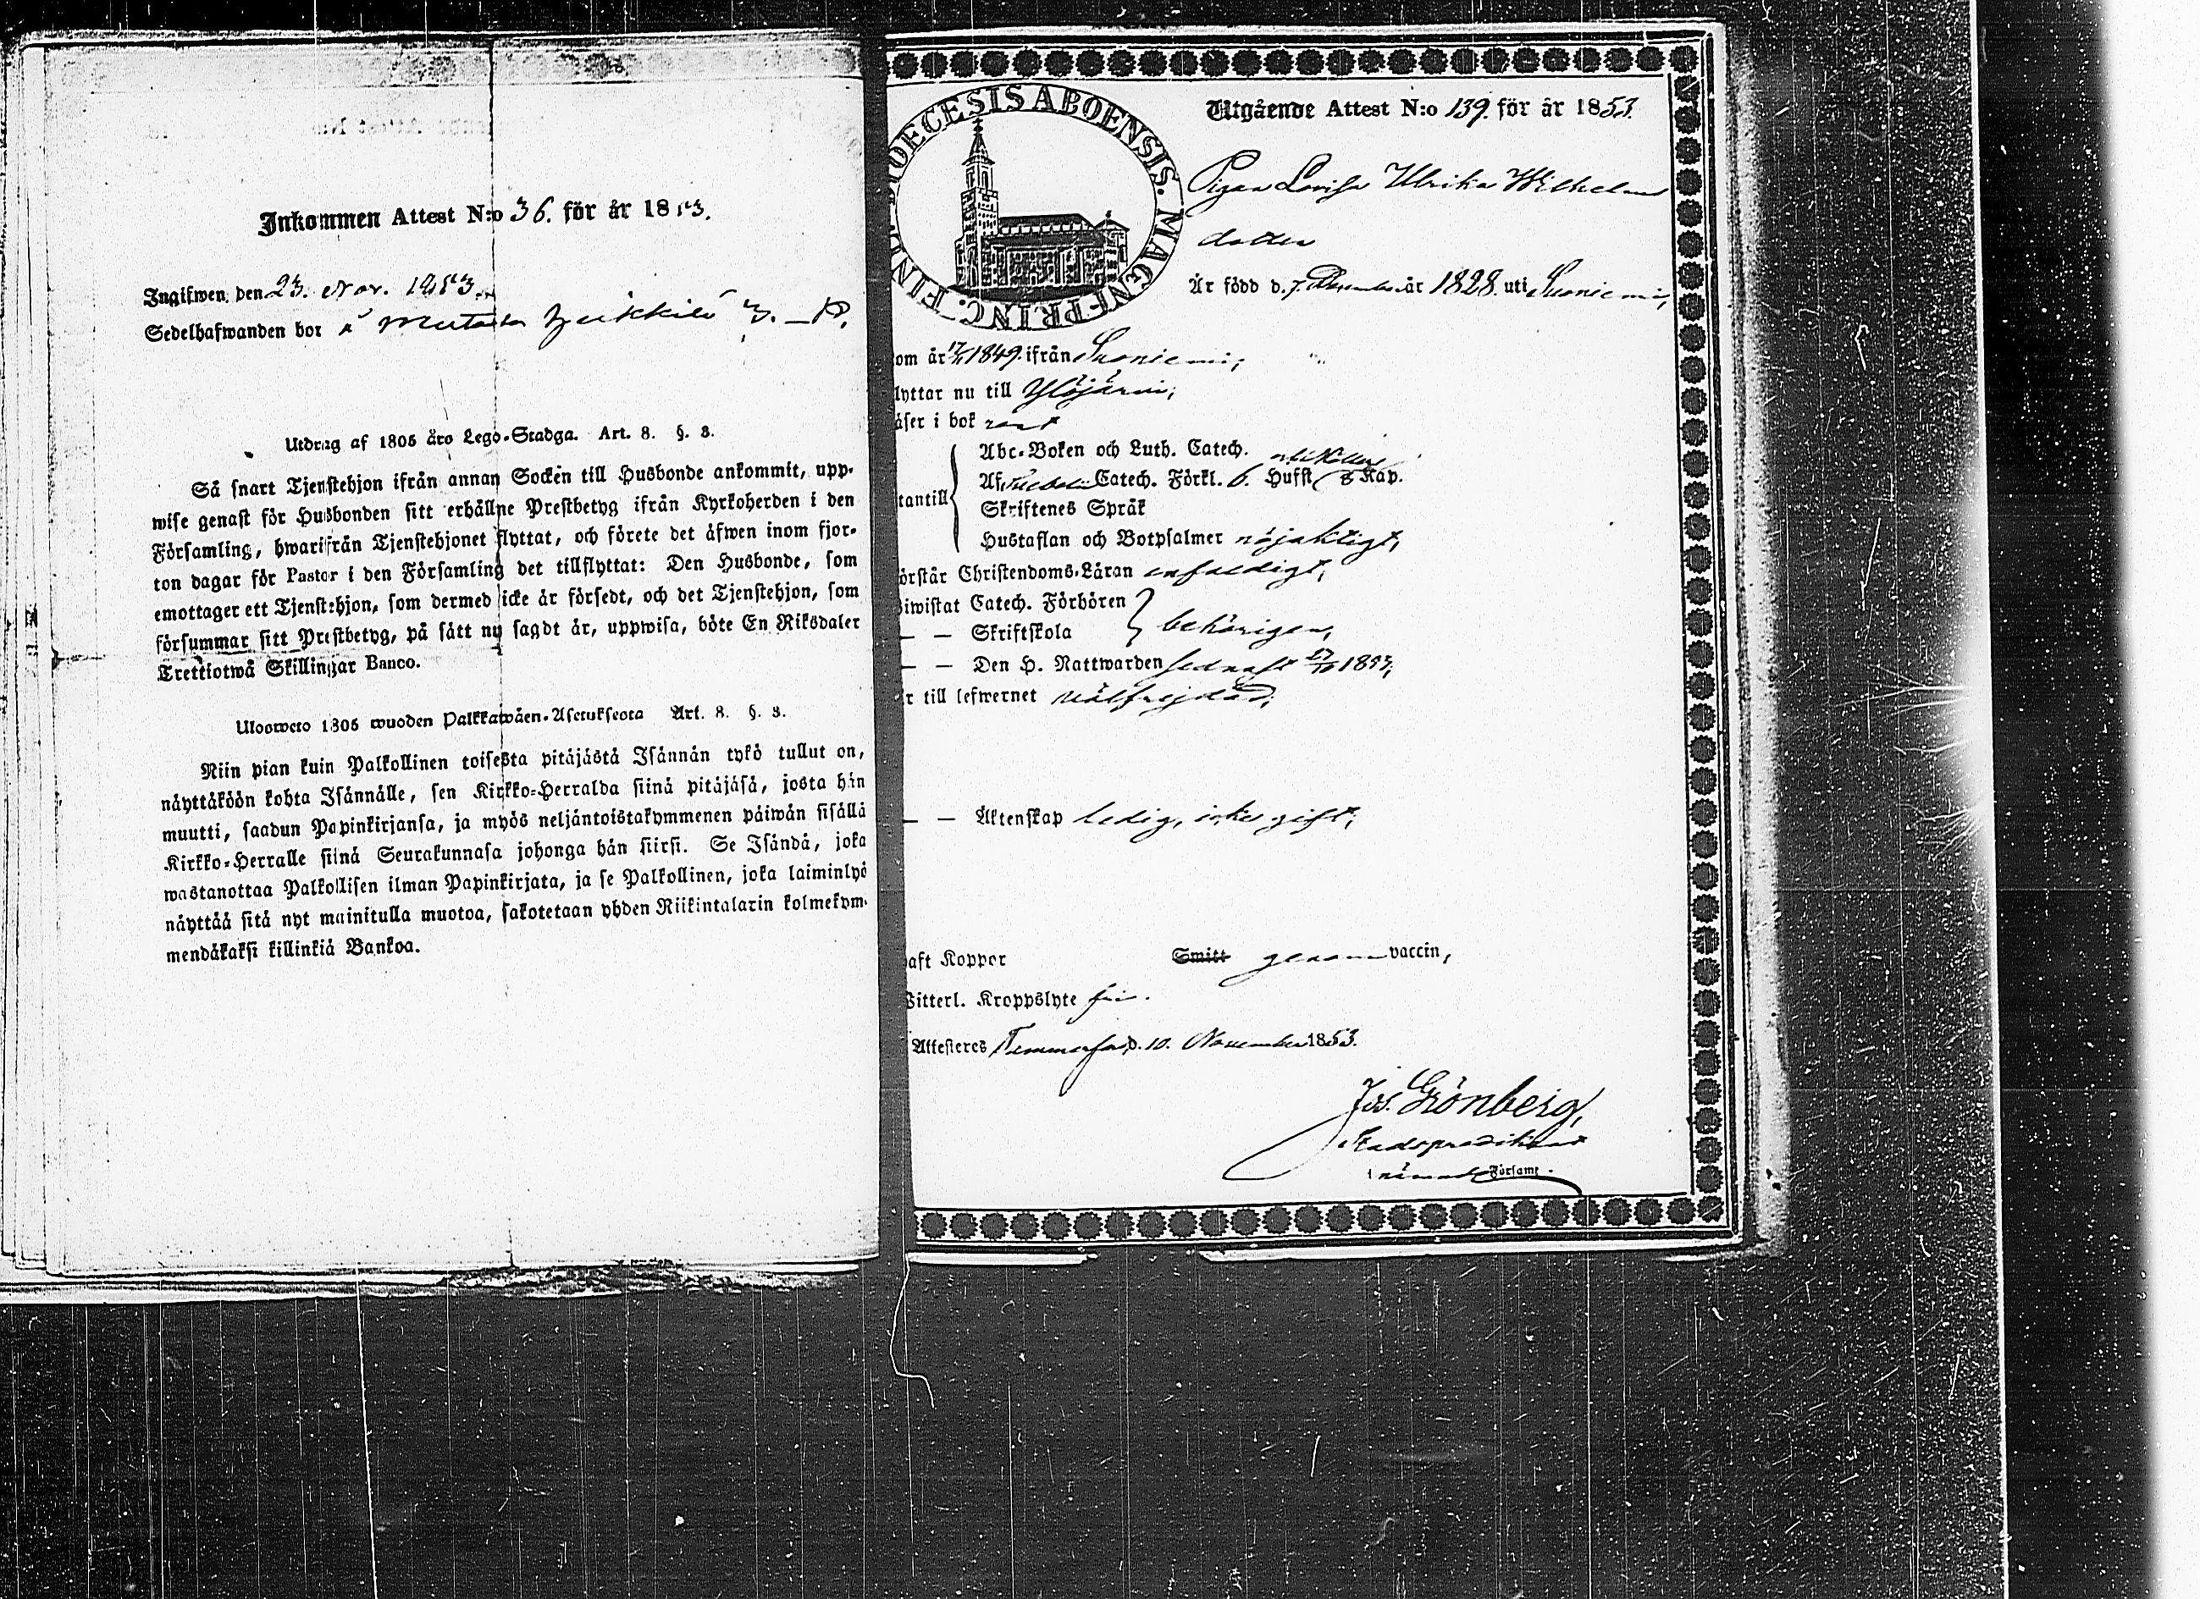 Inkommen Attest N:o 36. för år 1853.
Ingifwen den 23. Nov. 1853.
Sedelhafwanden bor å
Utdrag af 1805 års Lego-Stadga. Art. 8. §. 3.
Så snart Tjenstehjon ifrån annan Socken till Husbonde ankommit, upp-
wise genast för Husbonden sitt erhållne Prestbetyg ifrån Kyrkoherden i den
Församling, hwarifrån Tjenstehjonet flyttat, och förete det äfwen inom fjor-
ton dagar för Pastor i den Församling det tillflyttat: Den Husbonde, som
emottager ett Tjenstehjon, som dermed icke är försedt, och det Tjenstehjon, som
försummar sitt Prestbetyg, på sätt nu sagdt är, uppwisa, böte En Riksdaler
Trettiotwå Skillingar Banco.
Ulosweto 1805 wuoden Palkkawäen-Asetuksesta Art. 8. §. 3.
Niin pian kuin Palkollinen toisesta pitäjästä Isännän tykö tullut on,
näyttäköön kohta Isännälle, sen Kirkko-Herralda siinä pitäjäsä, josta hän
muutti, saadun Papinkirjansa, ja myös neljäntoistakymmenen päiwän sisällä
Kirkko-Herralle siinä Seurakunnasa johonga hän siirsi. Se Isändä, joka
wastanottaa Palkollisen ilman Papinkirjata, ja se Palkollinen, joka laiminlyö
näyttää sitä nyt mainitulla muotoa, sakotetaan yhden Riikintalarin kolmekym-
mendäkaksi killinkiä Bankoa.
DIOECESIS ABOENSIS. MAGNI PRINC. FINL.
Utgående Attest N:o 139. för år 1853.
Pigan Lovisa Ulrika Wilhelms
dotter
Är född d. 7. December år 1828. uti Suoniemi,
om år 17/11 1849. ifrån Suoniemi,
lyttar nu till Ylöjärvi,
äser i bok rent
Abc-Boken och Luth. Catech.
Af Catech. Förkl. 6. Hufst. 8 Kap.
tantill
Skriftenes Språk
Hustaflan och Botpsalmer nöjaktigt,
örstår Christendoms-Läran enfaldigt,
Biwistat Catech. Förhören
— — Skriftskola behörigen,
— — Den H. Nattwarden sednast 1853,
r till lefwernet välfrejdad,
— — Äktenskap ledig, icke gift,
aft Koppor Smitt genom vaccin,
Witterl. Kroppslyte fri.
Attesteres Tammerfors, d. 10. November 1853.
Jos. Grönberg,
Stadspredikant
Församl.